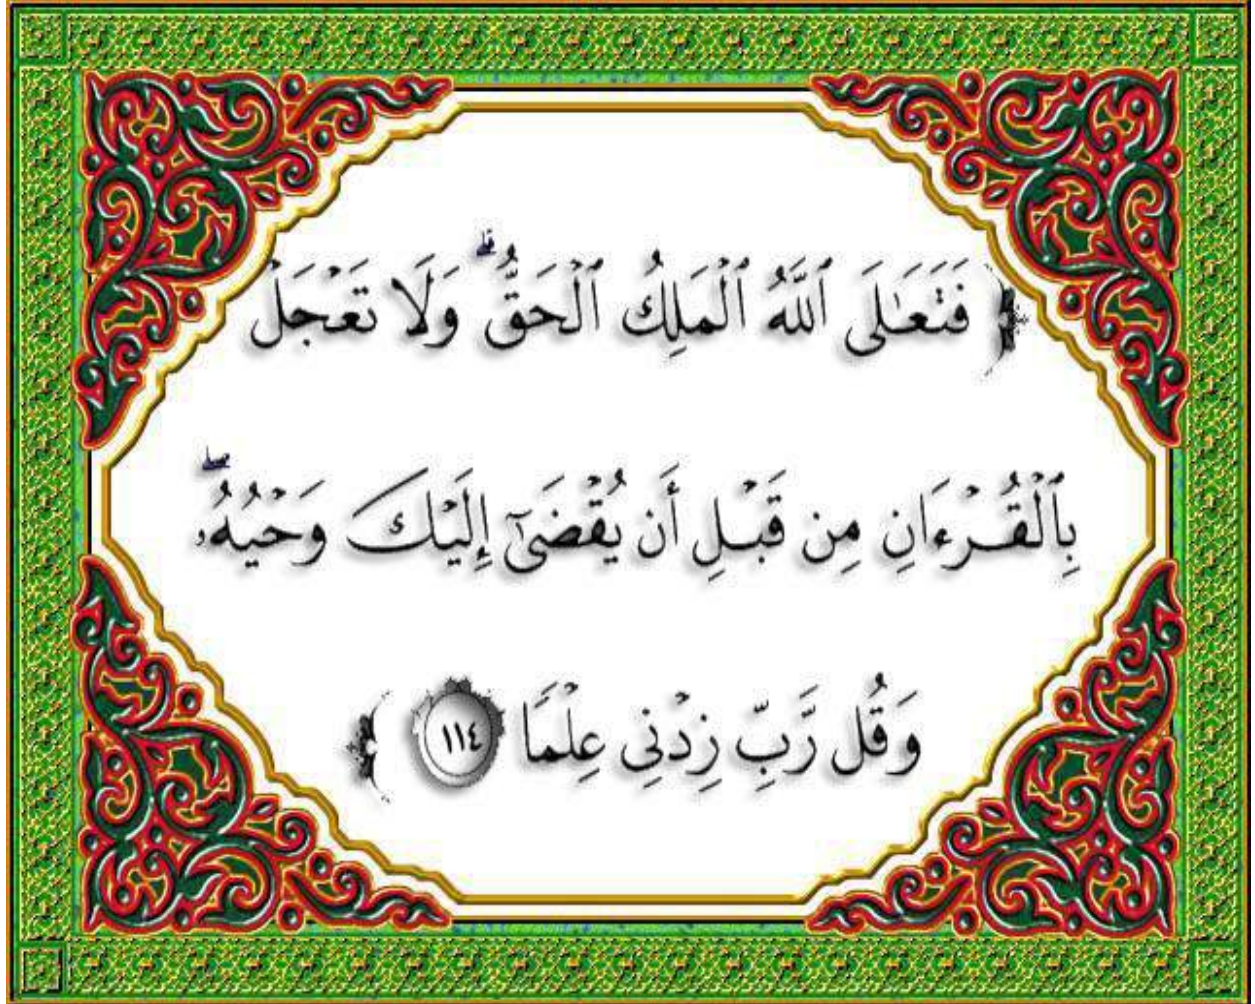 ﴿ فَتَعَٰلَى ٱللَّهُ ٱلْمَلِكُ ٱلْحَقُّ ۗ وَلَا تَعْجَلْ
بِٱلْقُرْءَانِ مِن قَبْلِ أَن يُقْضَىٰٓ إِلَيْكَ وَحْيُهُۥ ۖ
وَقُل رَّبِّ زِدْنِى عِلْمًا ١١٤ ﴾